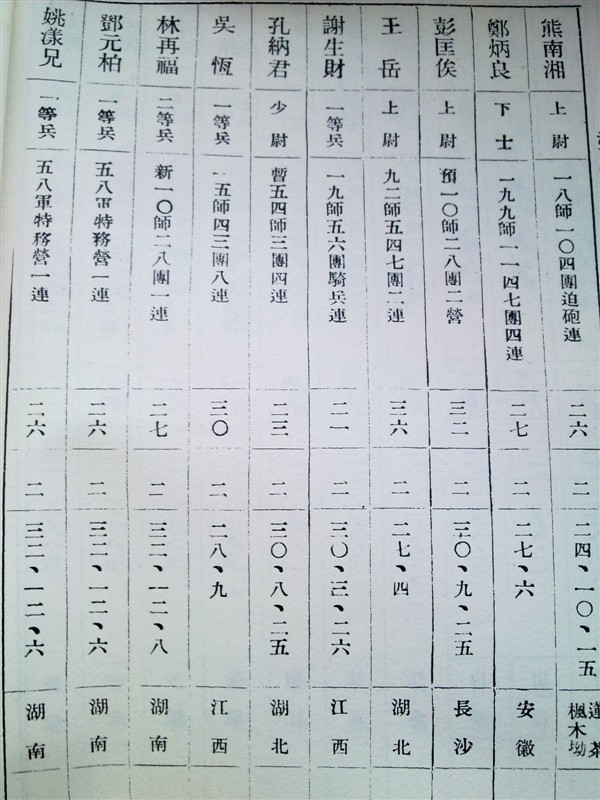 熊南湘 上尉 一八師一〇四團迫砲連 二六 二 二四、一〇、一五 蓮菜楓木坳
鄭炳良 下士 一九九師一一四七團四連 二七 二 二七、六 安徽
彭匡俟 上尉 預一〇師二八團二營 三二 二 三〇、九、二五 長沙
王岳 上尉 九二師五四七團二連 三六 二 二七、四 湖北
謝生財 一等兵 一九師五六團騎兵連 二一 二 三〇、三、二六 江西
孔納君 少尉 暫五四師三團四連 二三 二 三〇、八、二五 湖北
吳恆 一等兵 一五師四三團八連 三〇 二 二八、九 江西
林再福 二等兵 新一〇師二八團一連 二七 二 三二、一二、八 湖南
鄧元柏 一等兵 五八軍特務營一連 二六 二 三二、一二、六 湖南
姚漾兄 一等兵 五八軍特務營一連 二六 二 三二、一二、六 湖南